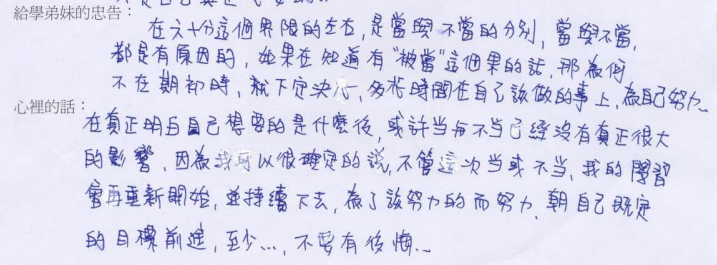 給學弟妹的忠告：
在六十分這個界限的左右，是當與不當的分別，當與不當，
都是有原因的，如果在知道有"被當"這個果的話，那為何
不在期初時，就下定決心，多花時間在自己該做的事上，為自己努力…
心裡的話：
在真正明白自己想要的是什麼後，或許当与不当已經沒有真正很大
的影響，因為我可以很確定的說，不管這次当或不当，我的學習
會再重新開始，並持續下去，為了該努力的而努力，朝自己既定
的目標前進，至少…，不要有後悔…